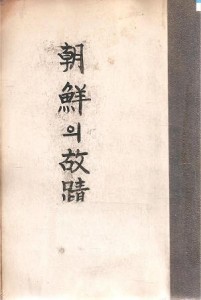 朝鮮의故蹟